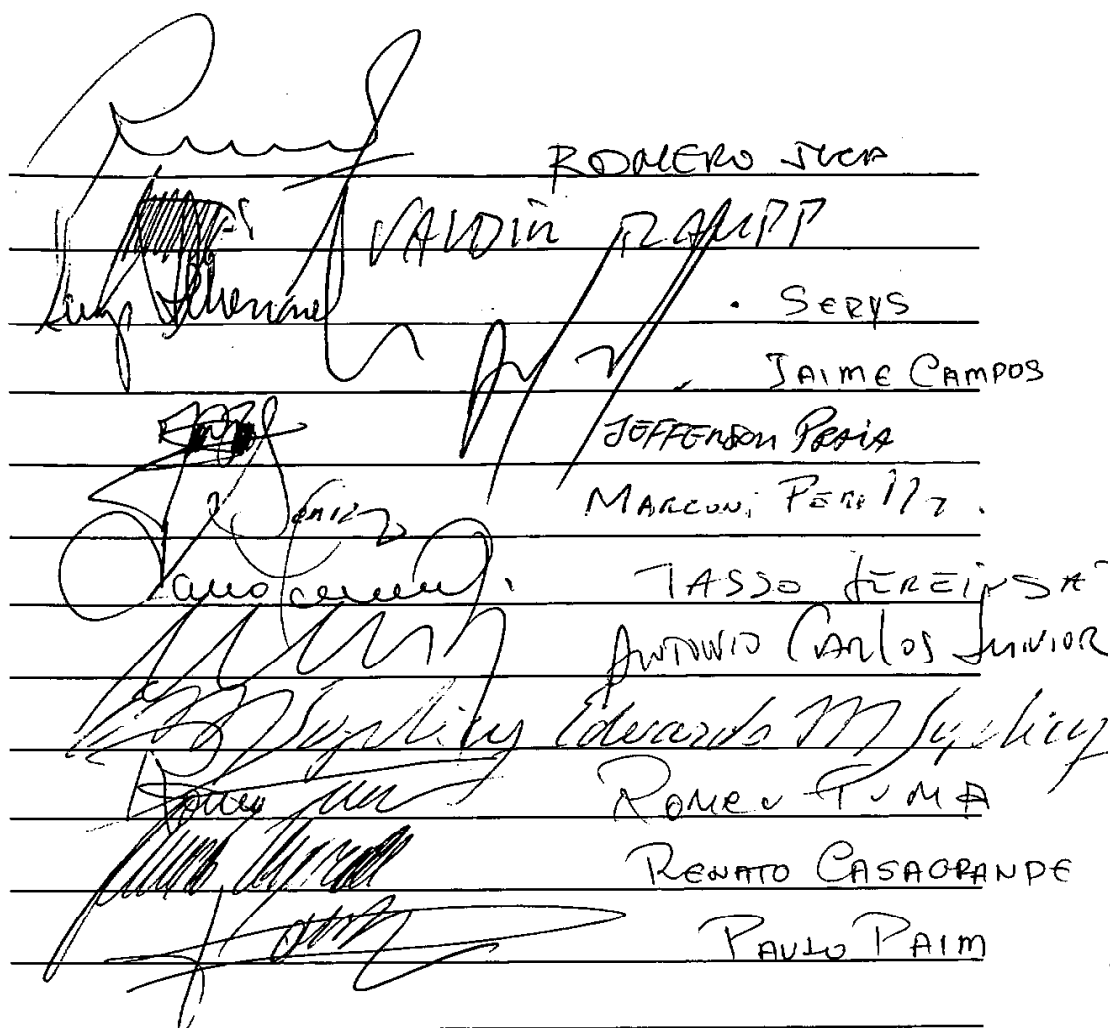 ROMERO JUCA
VALDIR RAUPP
. SERYS
JAIME CAMPOS
JEFFERSON PRAIA
MARCONI PERILLO.
TASSO JEREISSATI
ANTONIO CARLOS JUNIOR
Suplicy Eduardo M Suplicy
Romeu Tuma ROMEU TUMA
RENATO CASAGRANDE
PAULO PAIM